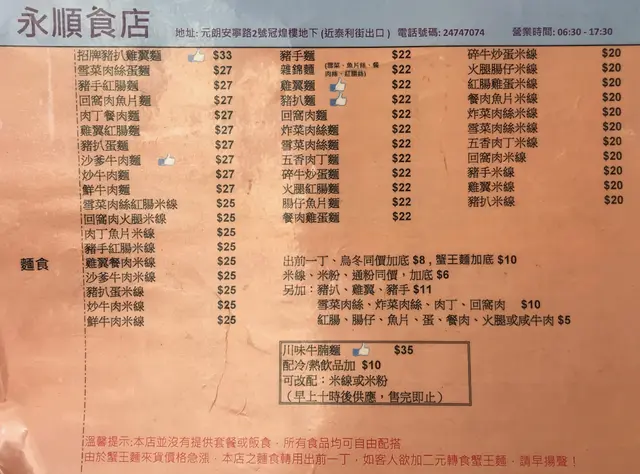 永順食店
地址: 元朗安寧路2號冠煌樓地下 (近泰利街出口) 電話號碼: 24747074 營業時間: 06:30 - 17:30
麵食
招牌豬扒雞翼麵 $33
雪菜肉絲蛋麵 $27
豬手紅腸麵 $27
回窩肉魚片麵 $27
肉丁餐肉麵 $27
雞翼紅腸麵 $27
豬扒蛋麵 $27
沙爹牛肉麵 $27
炒牛肉麵 $27
鮮牛肉麵 $27
雪菜肉絲紅腸米線 $25
回窩肉火腿米線 $25
肉丁魚片米線 $25
豬手紅腸米線 $25
雞翼餐肉米線 $25
沙爹牛肉米線 $25
豬扒蛋米線 $25
炒牛肉米線 $25
鮮牛肉米線 $25
豬手麵 $22
雜錦麵 $22
雞翼麵 $22
豬扒麵 $22
回窩肉麵 $22
炸菜肉絲麵 $22
雪菜肉絲麵 $22
五香肉丁麵 $22
碎牛炒蛋麵 $22
火腿紅腸麵 $22
腸仔魚片麵 $22
餐肉雞蛋麵 $22
碎牛炒蛋米線 $20
火腿腸仔米線 $20
紅腸雞蛋米線 $20
餐肉魚片米線 $20
炸菜肉絲米線 $20
雪菜肉絲米線 $20
五香肉丁米線 $20
回窩肉米線 $20
豬手米線 $20
雞翼米線 $20
豬扒米線 $20
出前一丁、烏冬同價加底 $8 , 蟹王麵加底 $10
米線、米粉、通粉同價，加底 $6
另加：豬扒、雞翼、豬手 $11
雪菜肉絲、炸菜肉絲、肉丁、回窩肉 $10
紅腸、腸仔、魚片、蛋、餐肉、火腿或咸牛肉 $5
川味牛腩麵 $35
配冷/熱飲品加 $10
可改配：米線或米粉
（早上十時後供應，售完即止）
溫馨提示:本店並沒有提供套餐或飯食，所有食品均可自由配搭
由於蟹王麵來貨價格急漲，本店之麵食轉用出前一丁，如客人欲加二元轉食蟹王麵，請早揚聲！